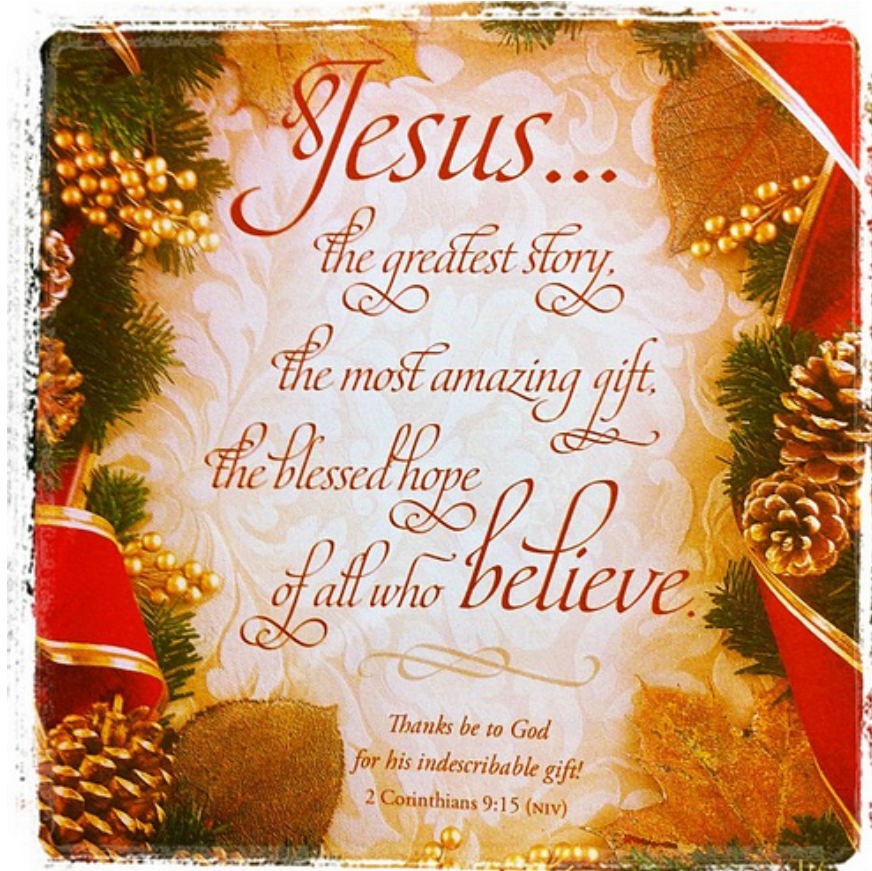 Jesus...
the greatest story,
the most amazing gift,
the blessed hope
of all who believe.
Thanks be to God
for his indescribable gift!
2 Corinthians 9:15 (NIV)